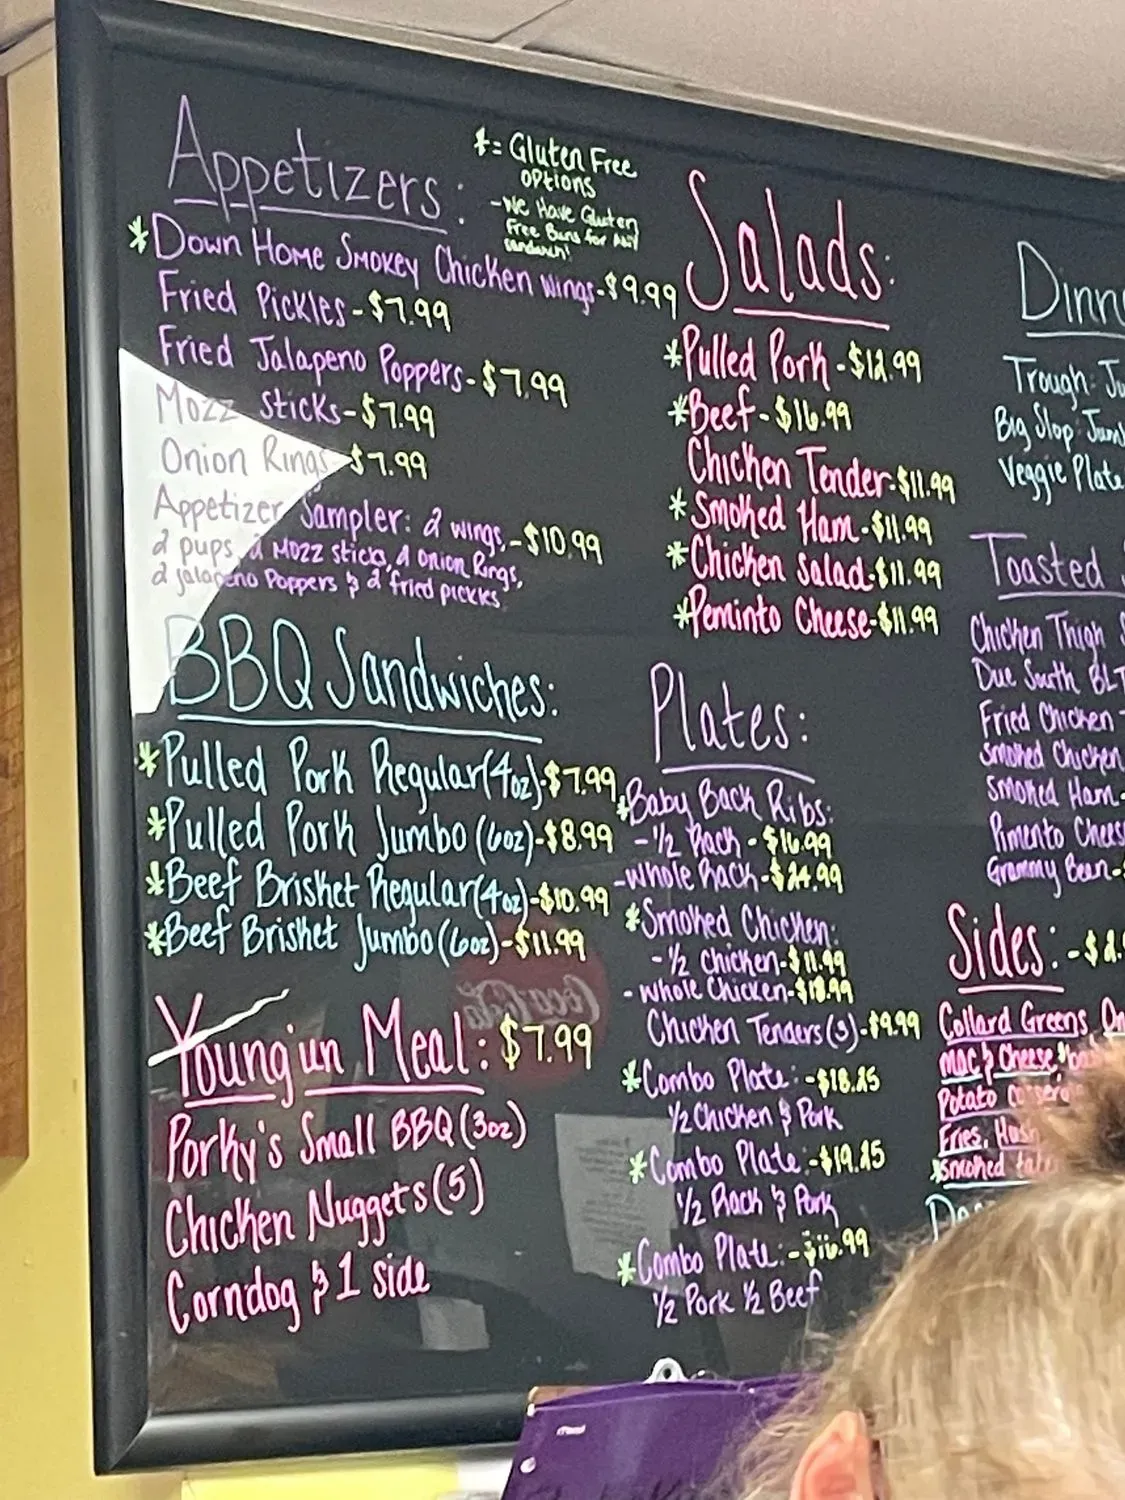 Appetizers:
*= Gluten Free
options
- We Have Gluten
Free Buns for Any
sandwich!
*Down Home Smokey Chicken wings-$9.99
Fried Pickles-$7.99
Fried Jalapeno Poppers-$7.99
Mozz sticks-$7.99
Onion Rings-$7.99
Appetizer Sampler: 2 wings,-$10.99
2 pups, 2 Mozz sticks, 2 Onion Rings,
2 jalapeno Poppers & 2 fried pickles
BBQ Sandwiches:
*Pulled Pork Regular(4oz)-$7.99
*Pulled Pork Jumbo (6oz)-$8.99
*Beef Brisket Regular(4oz)-$10.99
*Beef Brisket Jumbo(6oz)-$11.99
Youngin Meal: $7.99
Porky's Small BBQ(3oz)
Chicken Nuggets(5)
Corndog & 1 side
Salads:
*Pulled Pork-$12.99
*Beef-$16.99
Chicken Tender-$11.99
*Smoked Ham-$11.99
*Chicken Salad-$11.99
*Peminto Cheese-$11.99
Plates:
*Baby Back Ribs:
-1/2 Rack-$16.99
-whole Rack-$24.99
*Smoked Chicken:
-1/2 chicken-$11.99
-whole Chicken-$18.99
Chicken Tenders(3)-$9.99
*Combo Plate:-$18.25
1/2 Chicken & Pork
*Combo Plate:-$19.25
1/2 Rack & Pork
*Combo Plate:-$16.99
1/2 Pork 1/2 Beef
Dinn
Trough: Ju
Big Slop: Jum
Veggie Plate
Toasted
Chicken Thigh
Due South BLT
Fried Chicken
Smoked Chicken
Smoked Ham-
Pimento Chees
Grammy Bean-
Sides:-$2.
Collard Greens, On
Mac & Cheese
Potato
Fries, Hush
*Smoked
Coca-Cola